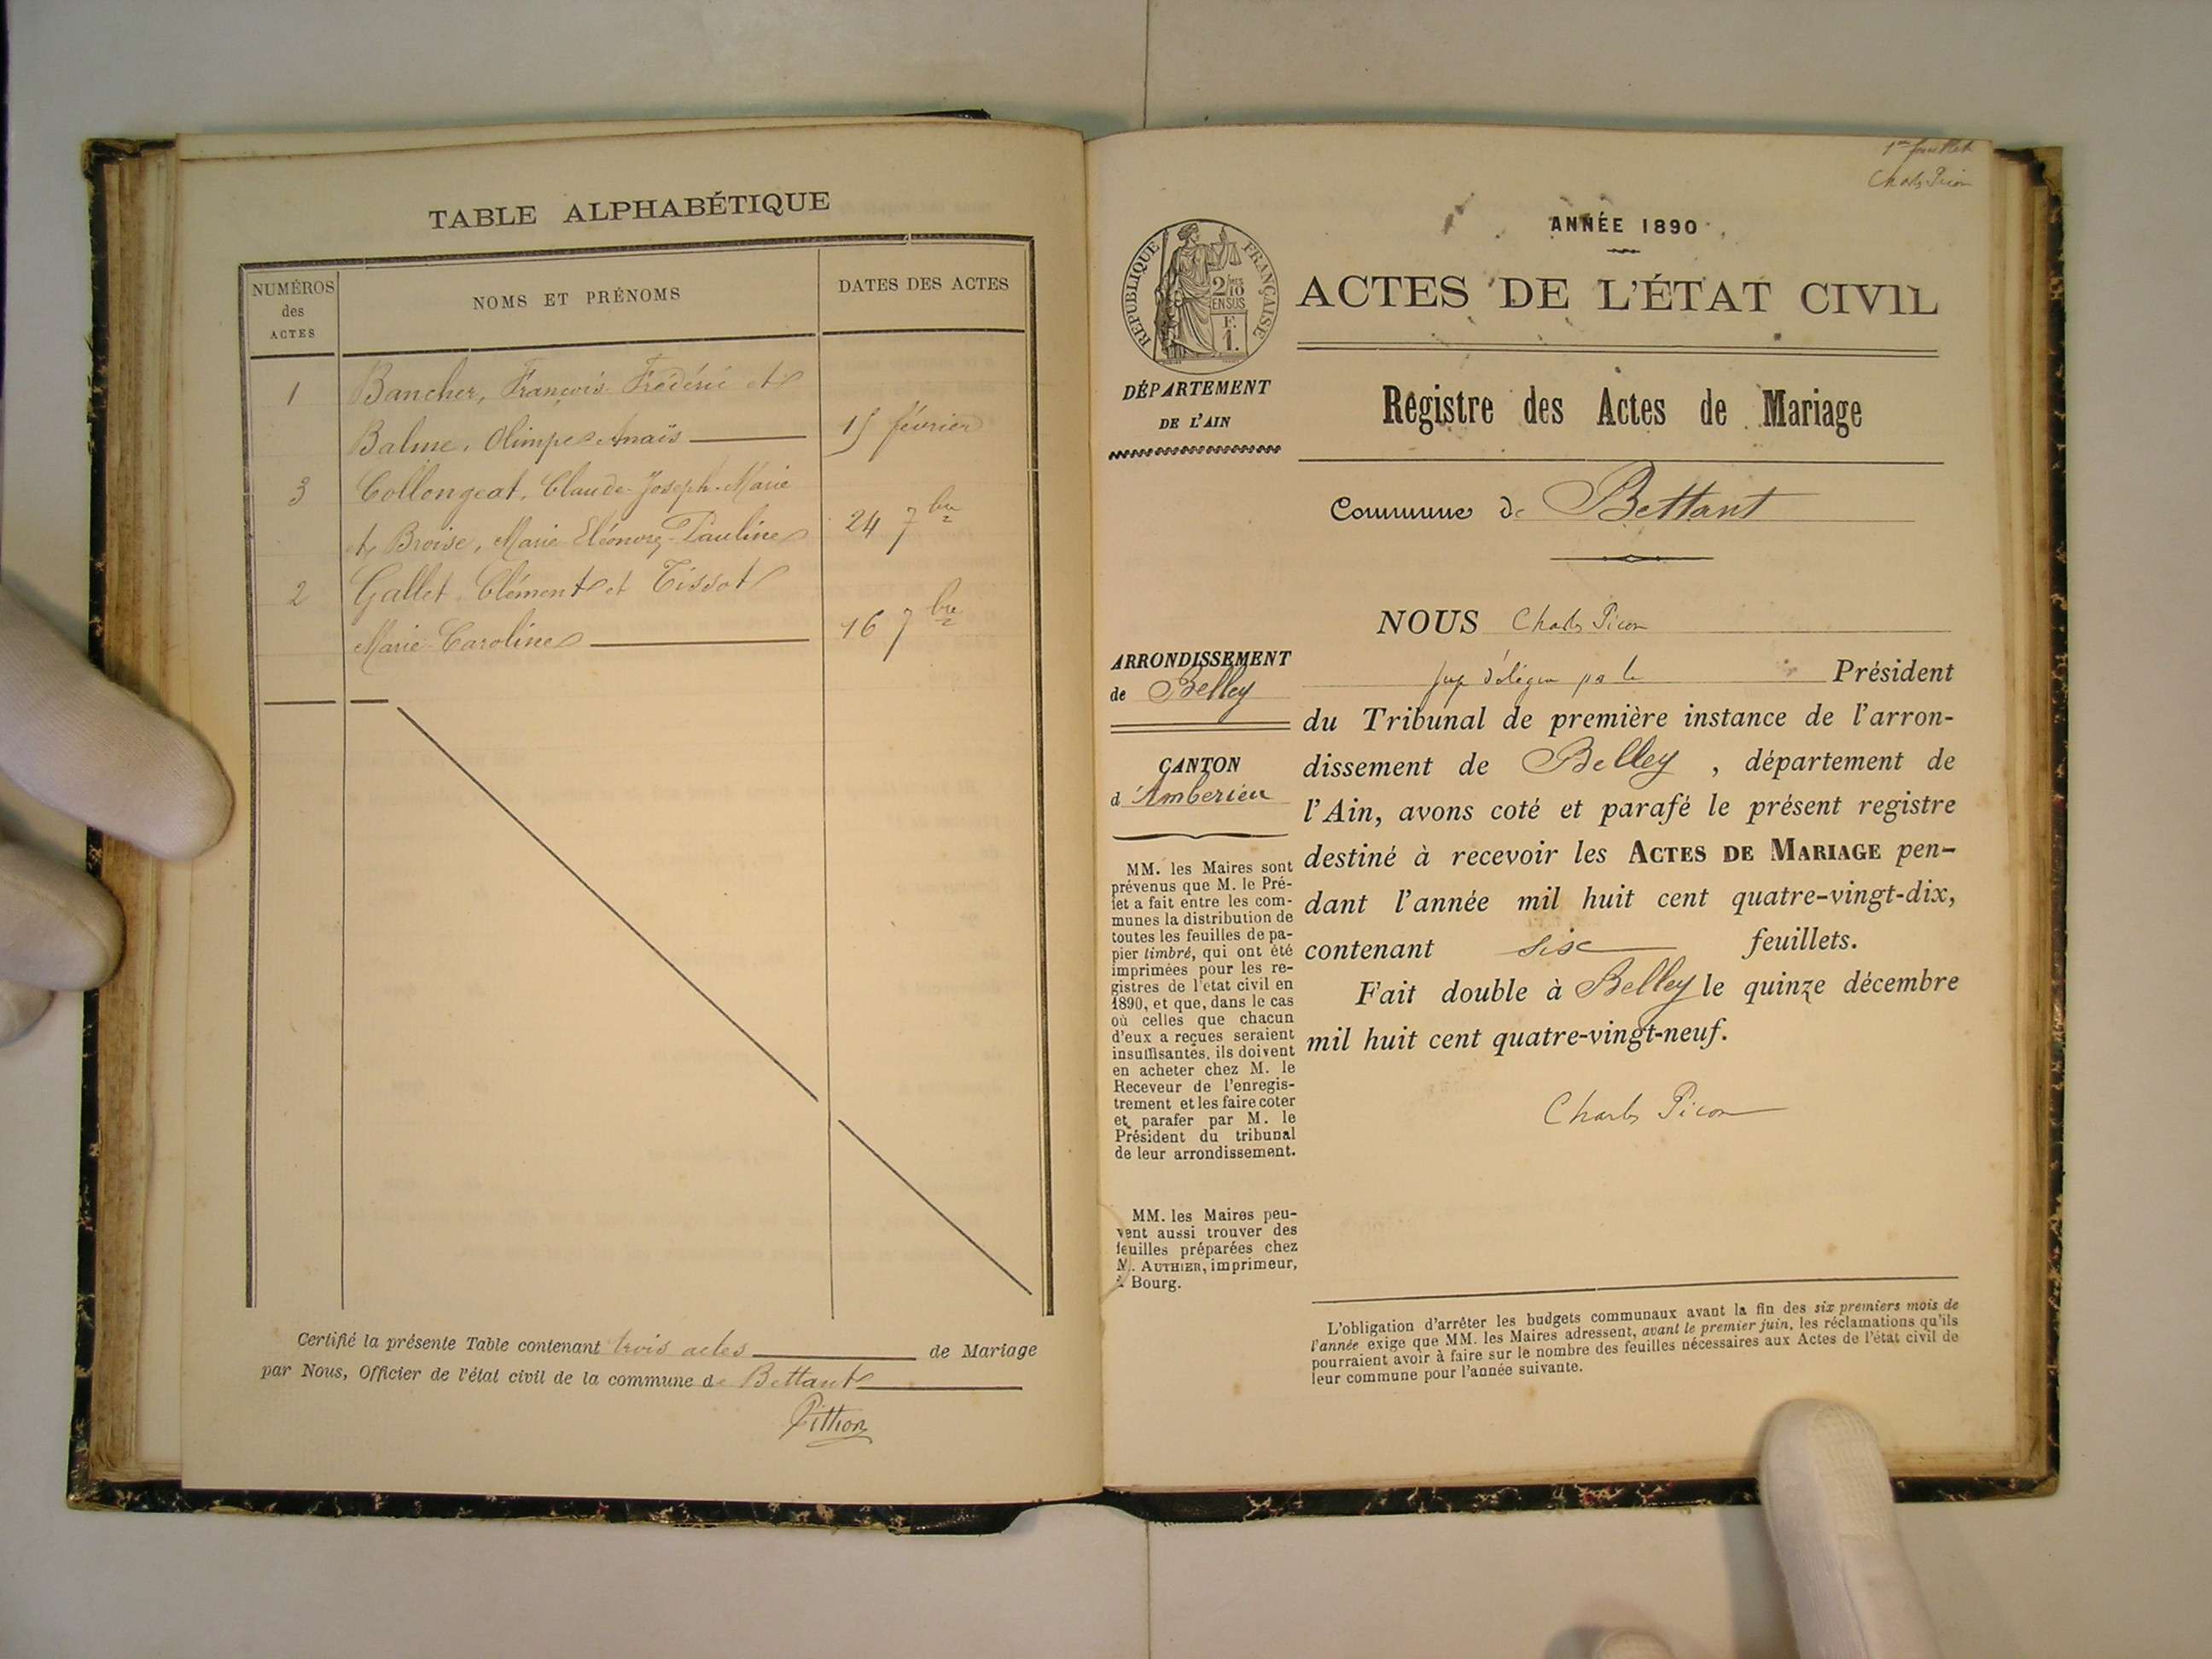 TABLE ALPHABÉTIQUE
NUMÉROS
des
ACTES
NOMS ET PRÉNOMS
DATES DES ACTES
1 Bancher, François-Frédéric et
Balme, Olimpe Anaïs 15 février
3 Collongeat, Claude-Joseph-Marie
et Broise, Marie Eléonore-Pauline 24 7bre
2 Gallet Clément et Tissot
Marie-Caroline 16 7bre
Certifié la présente Table contenant trois actes de Mariage
par Nous, Officier de l'état civil de la commune de Bettant
Pithon
1er feuillet
Charles Picon
ANNÉE 1890
RÉPUBLIQUE FRANÇAISE
2/10
EN SUS
F.
1.
ACTES DE L'ÉTAT CIVIL
DÉPARTEMENT
DE L'AIN
Registre des Actes de Mariage
Commune de Bettant
ARRONDISSEMENT
de Belley
CANTON
d'Amberieu
MM. les Maires sont
prévenus que M. le Pré-
fet a fait entre les com-
munes la distribution de
toutes les feuilles de pa-
pier timbré, qui ont été
imprimées pour les re-
gistres de l'état civil en
1890, et que, dans le cas
où celles que chacun
d'eux a reçues seraient
insuffisantes, ils doivent
en acheter chez M. le
Receveur de l'enregis-
trement et les faire coter
et parafer par M. le
Président du tribunal
de leur arrondissement.
MM. les Maires peu-
vent aussi trouver des
feuilles préparées chez
M. AUTHIER, imprimeur,
à Bourg.
NOUS Charles Picon
juge délégué par le Président
du Tribunal de première instance de l'arron-
dissement de Belley, département de
l'Ain, avons coté et parafé le présent registre
destiné à recevoir les ACTES DE MARIAGE pen-
dant l'année mil huit cent quatre-vingt-dix,
contenant six feuillets.
Fait double à Belley le quinze décembre
mil huit cent quatre-vingt-neuf.
Charles Picon
L'obligation d'arrêter les budgets communaux avant la fin des six premiers mois de
l'année exige que MM. les Maires adressent, avant le premier juin, les réclamations qu'ils
pourraient avoir à faire sur le nombre des feuilles nécessaires aux Actes de l'état civil de
leur commune pour l'année suivante.